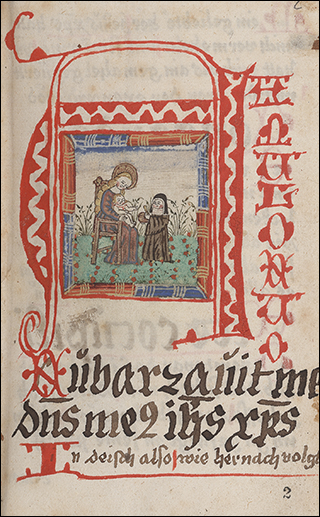 ANNULO SUO
Subarrauit me
dns me9 ihs xps
In deisch also wie hernach volgt
2